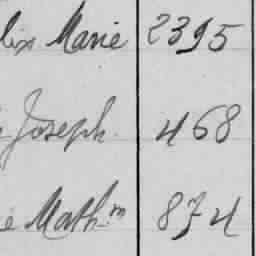 lix Marie 2395
Joseph 468
e Math.m 874